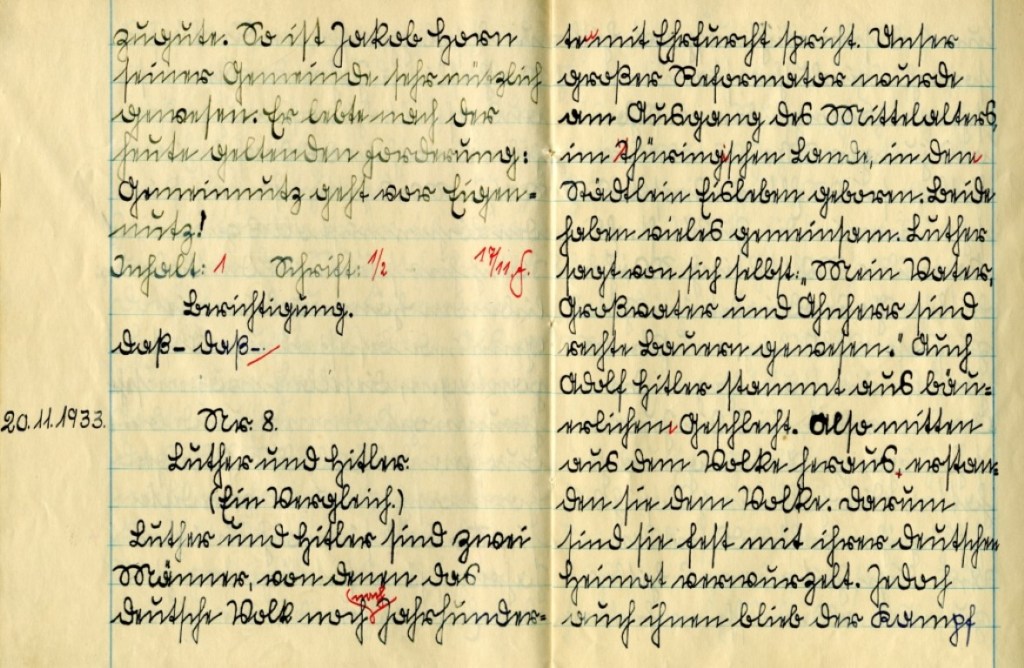 zugute. So ist Jakob Horn
seiner Gemeinde sehr nützlich
gewesen. Er lebte nach der
heute geltenden Forderung:
Gemeinnutz geht vor Eigen-
nutz!
Inhalt: 1 Schrift: 1/2 17/11.
Berichtigung.
daß - daß -.
20.11.1933. Nr. 8.
Luther und Hitler.
(Ein Vergleich.)
Luther und Hitler sind zwei
Männer, von denen das
deutsche Volk noch nach Jahrhunder-
ten mit Ehrfurcht spricht. Unser
großer Reformator wurde
am Ausgang des Mittelalters,
im Thüringischen Lande, in dem
Städtlein Eisleben geboren. Beide
haben vieles gemeinsam. Luther
sagt von sich selbst: „Mein Vater,
Großvater und Ahnherr sind
rechte Bauern gewesen." Auch
Adolf Hitler stammt aus bäu-
erlichem Geschlecht. Also mitten
aus dem Volke heraus, erstan-
den sie dem Volke. Darum
sind sie fest mit ihrer deutschen
Heimat verwurzelt. Jedoch
auch ihnen blieb der Kampf